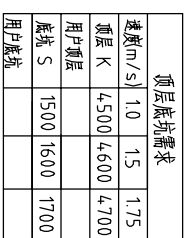 顶层底坑需求
速度(m/s) 1.0 1.5 1.75
顶层 K 4500 4600 4700
用户顶层
底坑 S 1500 1600 1700
用户底坑